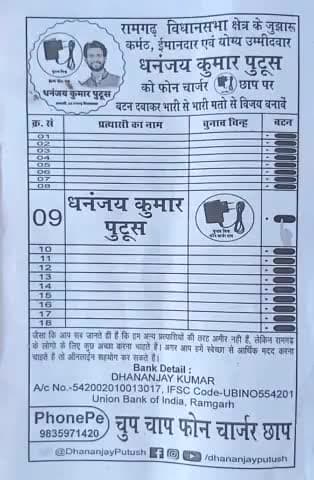 रामगढ़ विधानसभा क्षेत्र के जुझारू
कर्मठ, ईमानदार एवं योग्य उम्मीदवार
धनंजय कुमार पुटूस
को फोन चार्जर छाप पर
बटन दवाकर भारी से भारी मतो से विजय बनावें
धनंजय कुमार पुटूस
क्र. सं प्रत्याशी का नाम चुनाव चिन्ह बटन
01
02
03
04
05
06
07
08
09 धनंजय कुमार
पुटूस
10
11
12
13
14
15
16
17
18
जैसा कि आप सब जानते ही हैं कि हम अन्य प्रत्याशियों की तरह अमीर नही हैं, लेकिन रामगढ़
के लोगो के लिए कुछ अच्छा करना चाहते है। अगर आप हमें स्वेच्छा से आर्थिक मदद करना
चाहते है तो ऑनलाईन सहयोग कर सकते है।
Bank Detail :
DHANANJAY KUMAR
A/c No.-542002010013017, IFSC Code-UBINO554201
Union Bank of India, Ramgarh
PhonePe
9835971420
चुप चाप फोन चार्जर छाप
@DhananjayPutush /dhananjayputush